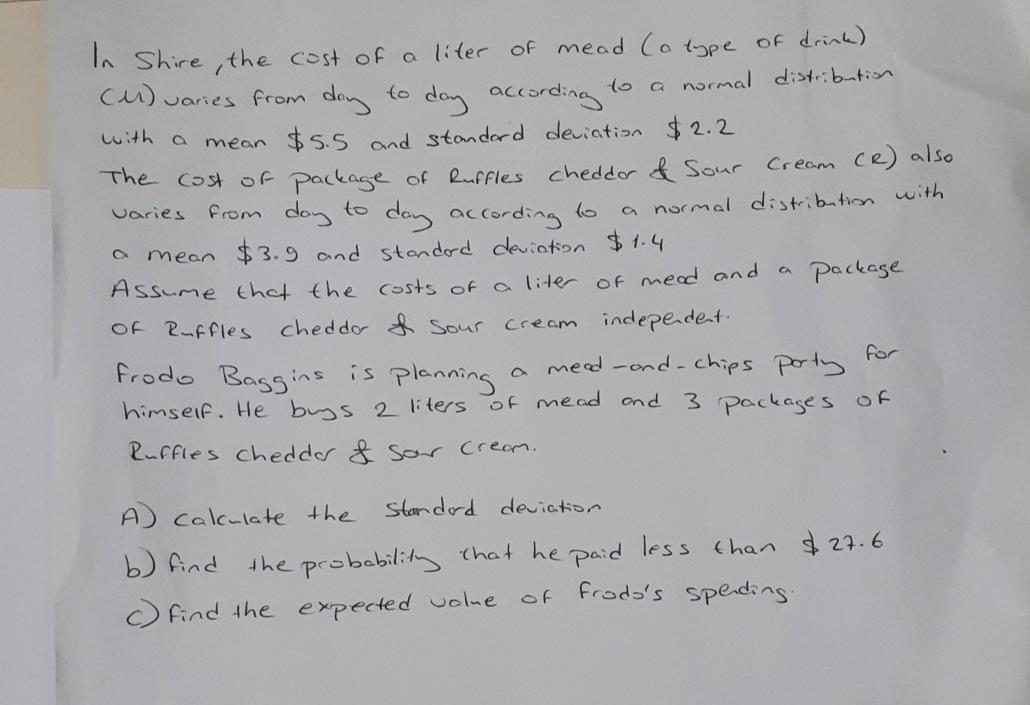 In Shire, the cost of a liter of mead (a type of drink)
(M) varies from day to day according to a normal distribution
with a mean $5.5 and standard deviation $2.2
The cost of package of Ruffles cheddar & Sour Cream (R) also
varies from day to day according to a normal distribution with
a mean $3.9 and standard deviation $1.4
Assume that the costs of a liter of mead and a package
of Ruffles cheddar & sour cream independent.
Frodo Baggins is planning a mead-and-chips party for
himself. He buys 2 liters of mead and 3 packages of
Ruffles cheddar & sour cream.
A) calculate the standard deviation
b) find the probability that he paid less than $27.6
c) find the expected value of Frodo's spending.